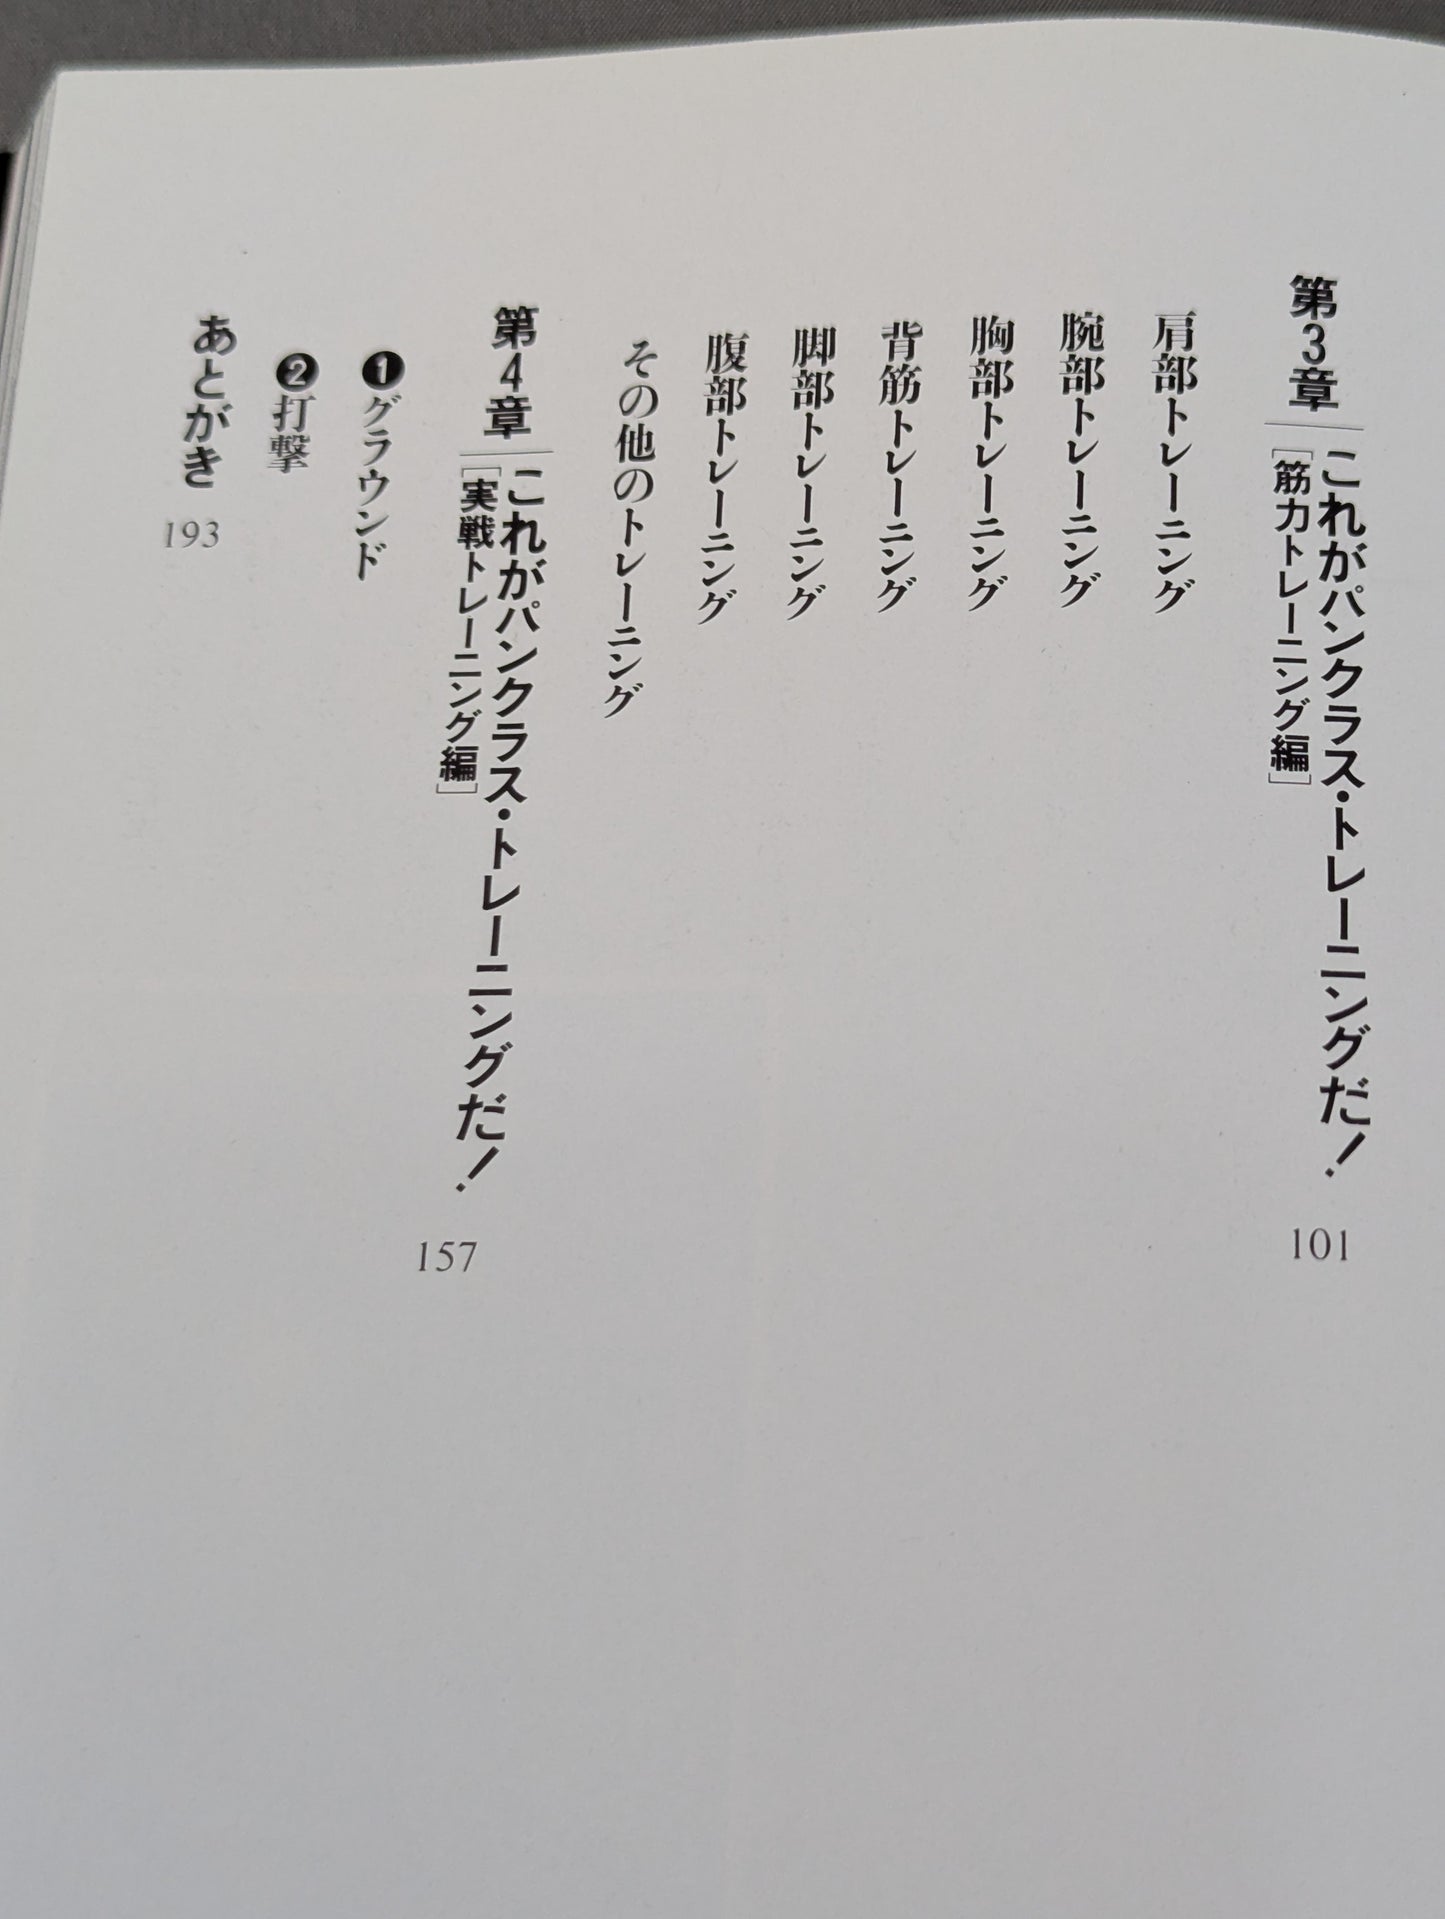 第3章
これがパンクラス・トレーニングだ!
[筋力トレーニング編]
101
肩部トレーニング
腕部トレーニング
胸部トレーニング
背筋トレーニング
脚部トレーニング
腹部トレーニング
その他のトレーニング
第4章
これがパンクラス・トレーニングだ!
[実戦トレーニング編]
157
❶グラウンド
❷打撃
あとがき 193